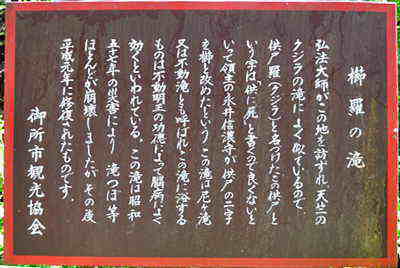 櫛羅の滝
弘法大師がこの地を訪ずれ、天竺の
クジラの滝によく似ているので、
供尸羅(クジラ)と名づけたが供尸と
いう字は供に死と書くので良くないと
いって領主の永井信濃守が供尸の二字
を櫛と改めたという。この滝は尼ケ滝
又は不動滝とも呼ばれ、この滝に浴する
ものは不動明王の功徳によって脳病によく
効くといわれている。この滝は昭和
五十七年の災害により、滝つぼ等
ほとんどが崩壊しましたが、その后
平成元年に修復されたものです。
御所市観光協会